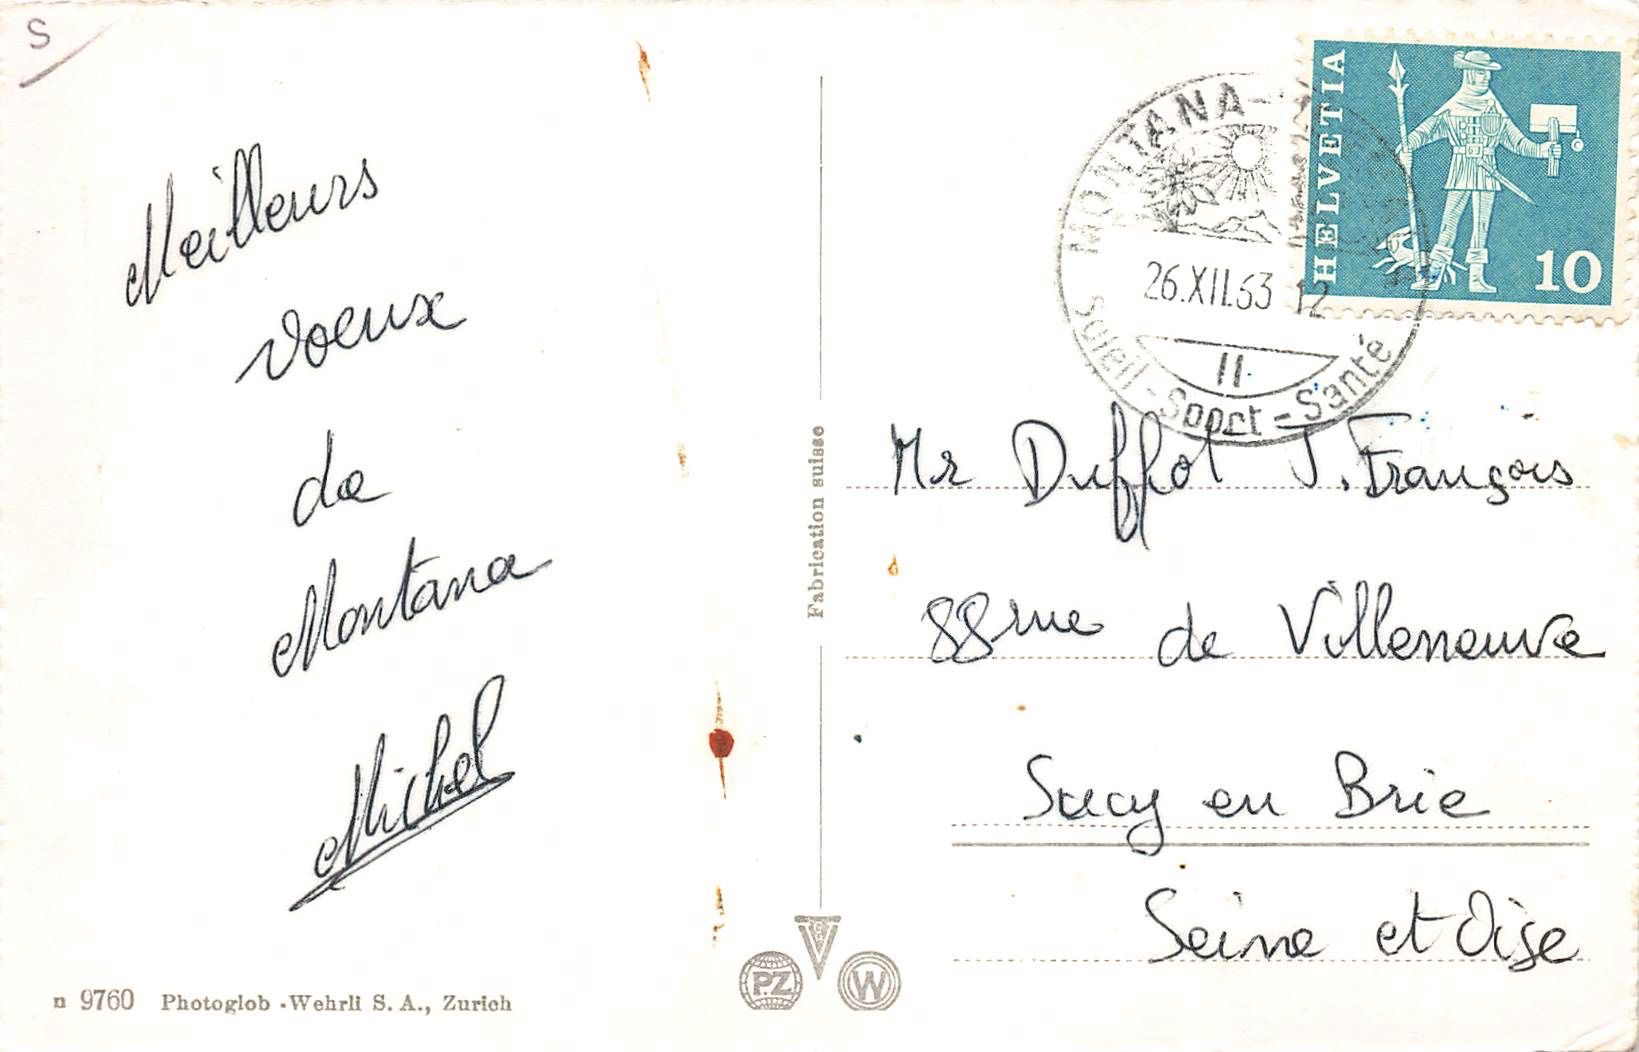 S
Meilleurs
voeux
de
Montana
Michel
n 9760 Photoglob-Wehrli S.A., Zurich
Fabrication suisse
PZ
W
HELVETIA
10
MONTANA-
26.XII.63 12
II
Soleil-Sport-Santé
Mr Duffol J. François
88 rue de Villeneuve
Sucy en Brie
Seine et Oise